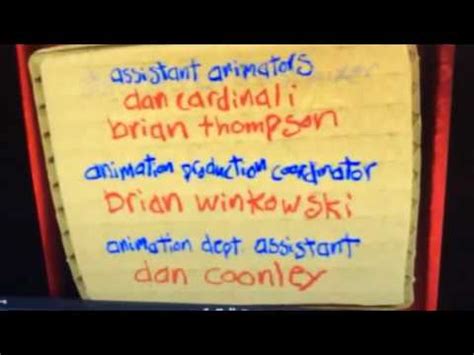 assistant animators
dan cardinali
brian thompson
animation production coordinator
brian winkowski
animation dept. assistant
dan coonley